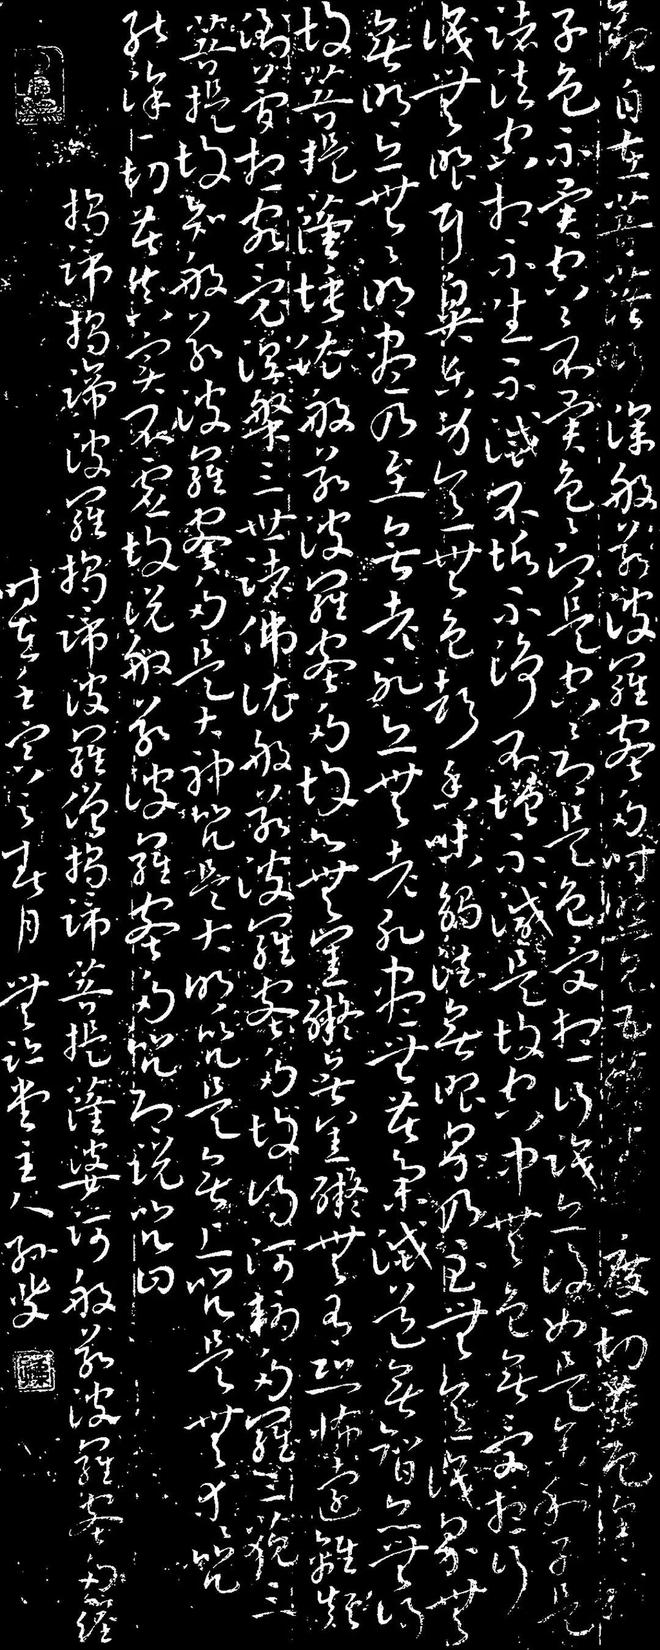 觀自在菩薩行深般若波羅蜜多時照見五蘊度一切苦厄舍利
子色不異空々不異色々即是空々即是色受想行識亦復如是舍利子是
諸法空相不生不滅不垢不淨不增不減是故空中無色無受想行
識無眼耳鼻舌身意無色聲香味觸法無眼界乃至無意識界無
無明亦無々明盡乃至無老死亦無老死盡無苦集滅道無智亦無得
故菩提薩埵依般若波羅蜜多故心無罣礙無罣礙無有恐怖遠離顛
倒夢想究竟涅槃三世諸佛依般若波羅蜜多故得阿耨多羅三藐三
菩提故知般若波羅蜜多是大神咒是大明咒是無上咒是無等々咒
能除一切苦真實不虛故說般若波羅蜜多咒即說咒曰
揭諦揭諦波羅揭諦波羅僧揭諦菩提薩婆訶般若波羅蜜多經
時在壬寅之春月無堂主人孫